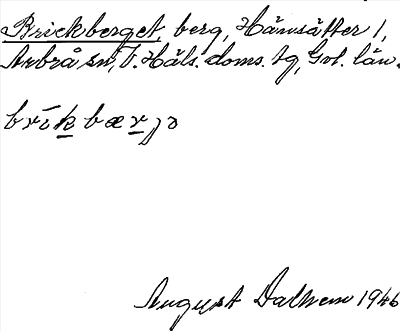 Brickberget, berg, Hänsätter 1,
Arbrå sn, V. Häls. doms. tg, Gvl. län.
brīkbærjə
August Dalhem 1946